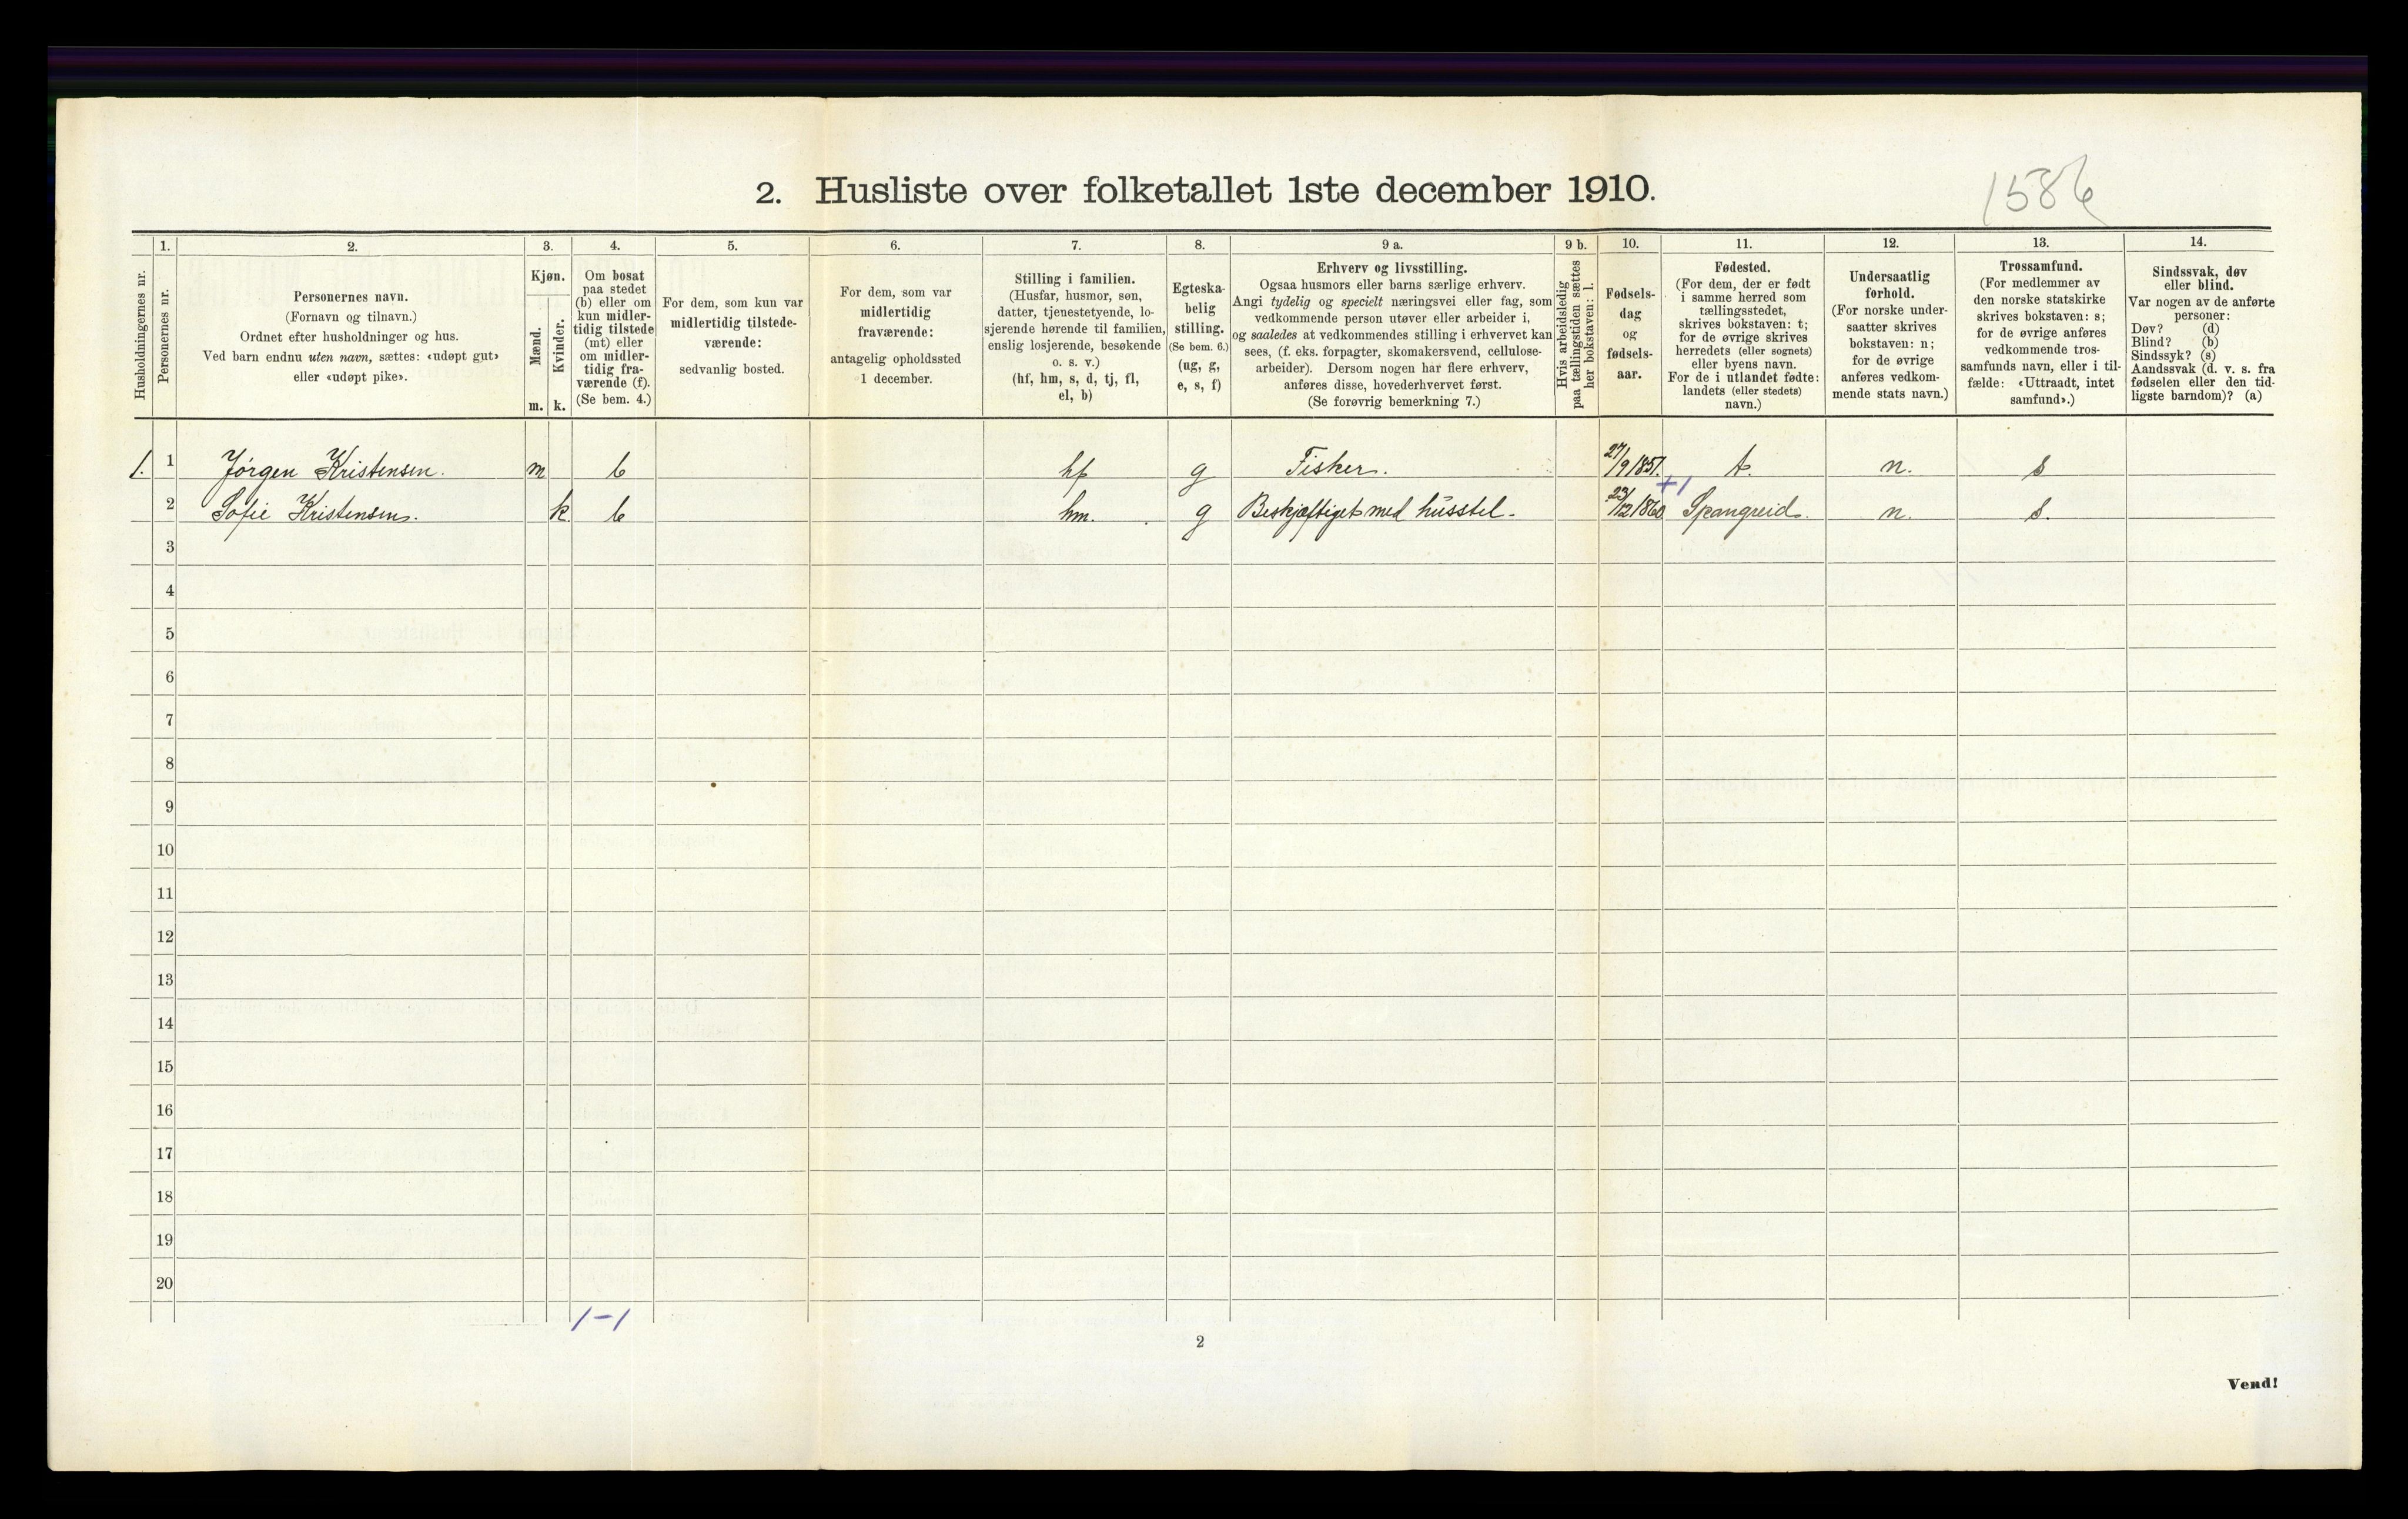 1586
2. Husliste over folketallet 1ste december 1910.
Husholdningernes nr.
1.
Personernes nr.
2.
Personernes navn.
(Fornavn og tilnavn.)
Ordnet efter husholdninger og hus.
Ved barn endnu uten navn, sættes: «udøpt gut»
eller «udøpt pike».
3.
Kjøn.
Mænd.
m.
Kvinder.
k.
4.
Om bosat
paa stedet
(b) eller om
kun midler-
tidig tilstede
(mt) eller
om midler-
tidig fra-
værende (f).
(Se bem. 4.)
5.
For dem, som kun var
midlertidig tilstede-
værende:
sedvanlig bosted.
6.
For dem, som var
midlertidig
fraværende:
antagelig opholdssted
1 december.
7.
Stilling i familien.
(Husfar, husmor, søn,
datter, tjenestetyende, lo-
sjerende hørende til familien,
enslig losjerende, besøkende
o. s. v.)
(hf, hm, s, d, tj, fl,
el, b)
8.
Egteska-
belig
stilling.
(Se bem. 6.)
(ug, g,
e, s, f)
9 a.
Erhverv og livsstilling.
Ogsaa husmors eller barns særlige erhverv.
Angi tydelig og specielt næringsvei eller fag, som
vedkommende person utøver eller arbeider i,
og saaledes at vedkommendes stilling i erhvervet kan
sees, (f. eks. forpagter, skomakersvend, cellulose-
arbeider). Dersom nogen har flere erhverv,
anføres disse, hovederhvervet først.
(Se forøvrig bemerkning 7.)
9 b.
Hvis arbeidsledig
paa tællingstiden sættes
her bokstaven: l.
10.
Fødsels-
dag
og
fødsels-
aar.
11.
Fødested.
(For dem, der er født
i samme herred som
tællingsstedet,
skrives bokstaven: t;
for de øvrige skrives
herredets (eller sognets)
eller byens navn.
For de i utlandet fødte:
landets (eller stedets)
navn.)
12.
Undersaatlig
forhold.
(For norske under-
saatter skrives
bokstaven: n;
for de øvrige
anføres vedkom-
mende stats navn.)
13.
Trossamfund.
(For medlemmer av
den norske statskirke
skrives bokstaven: s;
for de øvrige anføres
vedkommende tros-
samfunds navn, eller i til-
fælde: «Uttraadt, intet
samfund».)
14.
Sindssvak, døv
eller blind.
Var nogen av de anførte
personer:
Døv? (d)
Blind? (b)
Sindssyk? (s)
Aandssvak (d. v. s. fra
fødselen eller den tid-
ligste barndom)? (a)
1. 1 Jørgen Kristensen. m b hf g Fisker. 27/9 1851. t. n. s
+1
2 Sofie Kristensen. k. b hm. g Beskjæftiget med husstel. 23/12 1860 Spangreid. n. s.
3
4
5
6
7
8
9
10
11
12
13
14
15
16
17
18
19
20
1-1
2
Vend!